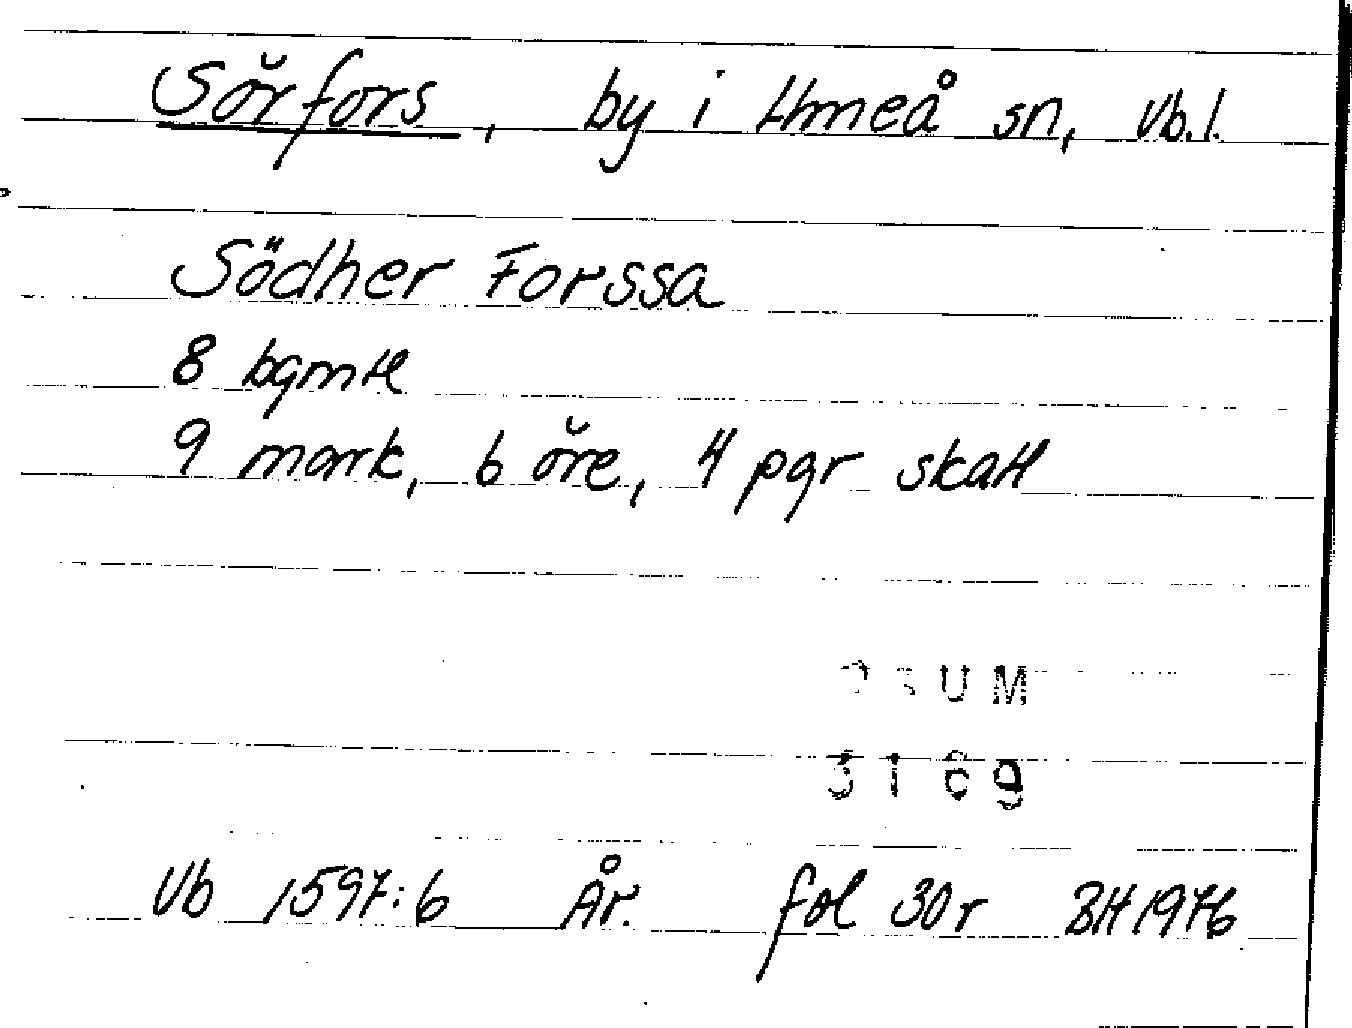 Sörfors, by i Umeå sn, Vb.l.
Södher Forssa
8 bgmtl
9 mark, 6 öre, 4 pgr skatt
UM
3169
Vb 1597:6 År. fol 30r BH 1976